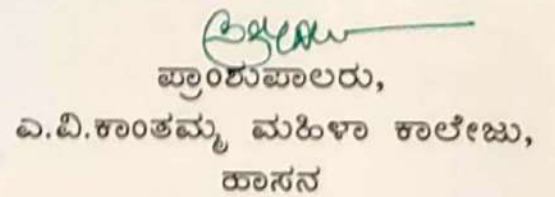 ಪ್ರಾಂಶುಪಾಲರು,
ಎ.ವಿ.ಕಾಂತಮ್ಮ ಮಹಿಳಾ ಕಾಲೇಜು,
ಹಾಸನ